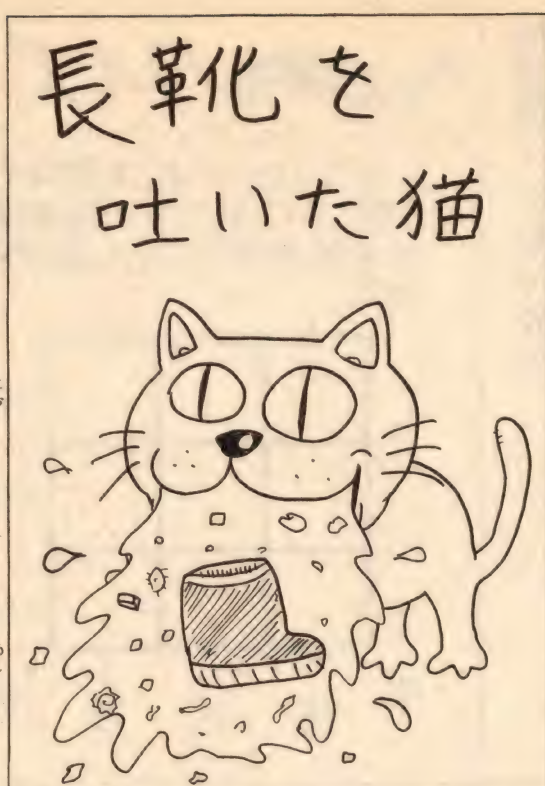 長靴を
吐いた猫